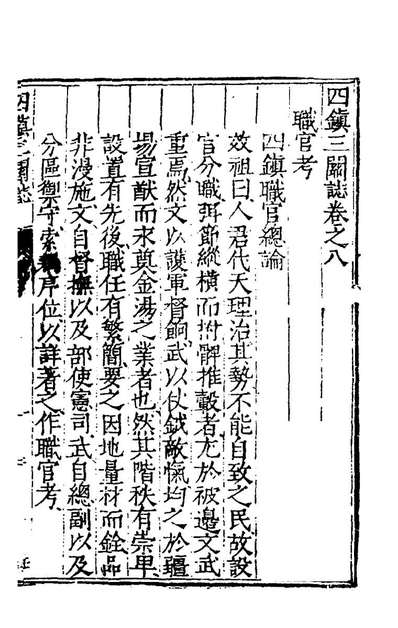 四鎮三關誌卷之八
職官考
四鎮職官總論
效祖曰人君代天理治其勢不能自致之民故設
官分職弭節縱橫而拊髀推轂者尤於被邊文武
重焉然文以護軍督餉武以仗鉞敵愾均之於疆
埸宣猷而求奠金湯之業者也然其階秩有崇卑
設置有先後職任有繁簡要之因地量材而銓品
非漫施文自督撫以及部使憲司武自總副以及
分區禦守索其序位以詳著之作職官考
四鎮三關誌